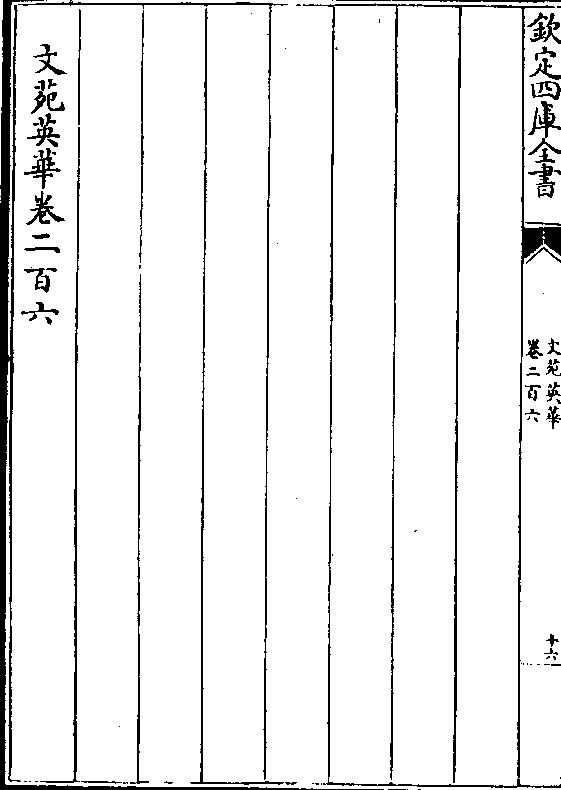 欽定四庫全書
文苑英華
卷二百六
十六
文苑英華卷二百六